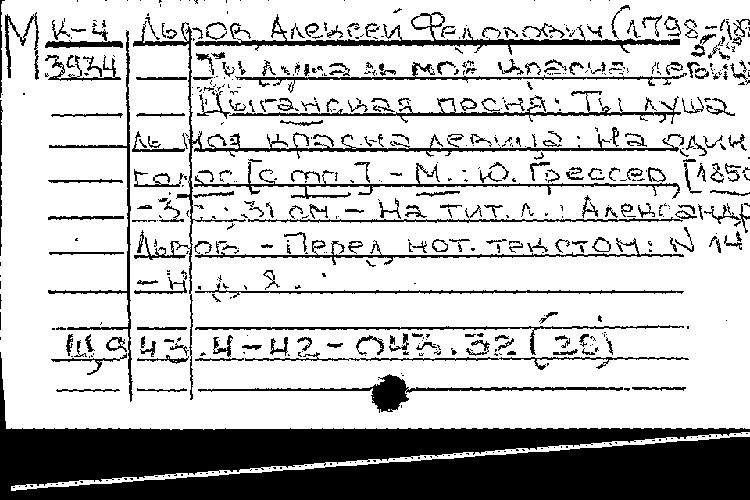 М К-4 Львов, Алексей Федорович (1798-18
3934 Ты душа ль моя красна девиц
Цыганская песня: Ты душа
ль моя красна девица: На один
голос [с фп.]. - М.: Ю. Грессер, [1850
- 3 с.; 31 см. - На тит. л.: Александр
Львов. - Перед нот. текстом: N 14
- Н. д. 8.
Щ943.4-42-043.32(28)